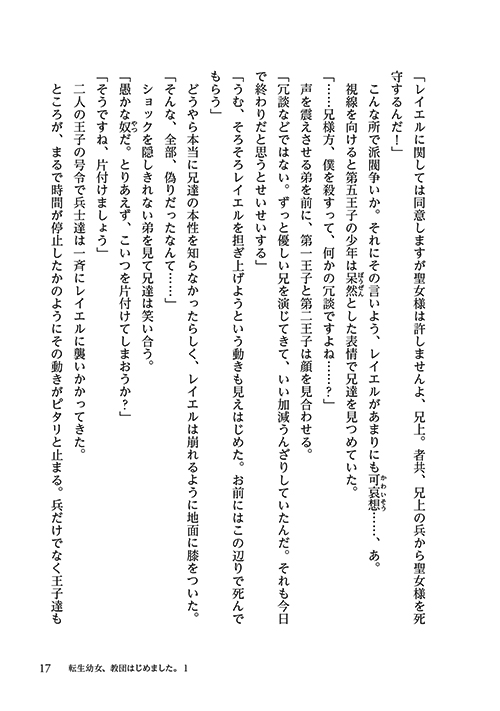 「レイエルに関しては同意しますが聖女様は許しませんよ、兄上。者共、兄上の兵から聖女様を死
守するんだ！」
こんな所で派閥争いか。それにその言いよう、レイエルがあまりにも可哀想……、あ。
視線を向けると第五王子の少年は呆然とした表情で兄達を見つめていた。
「……兄様方、僕を殺すって、何かの冗談ですよね……？」
声を震えさせる弟を前に、第一王子と第二王子は顔を見合わせる。
「冗談などではない。ずっと優しい兄を演じてきて、いい加減うんざりしていたんだ。それも今日
で終わりだと思うとせいせいする」
「うむ、そろそろレイエルを担ぎ上げようという動きも見えはじめた。お前にはこの辺りで死んで
もらう」
どうやら本当に兄達の本性を知らなかったらしく、レイエルは崩れるように地面に膝をついた。
「そんな、全部、偽りだったなんて……」
ショックを隠しきれない弟を見て兄達は笑い合う。
「愚かな奴だ。とりあえず、こいつを片付けてしまおうか？」
「そうですね、片付けましょう」
二人の王子の号令で兵士達は一斉にレイエルに襲いかかってきた。
ところが、まるで時間が停止したかのようにその動きがピタリと止まる。兵だけでなく王子達も
17 転生幼女、教団はじめました。1